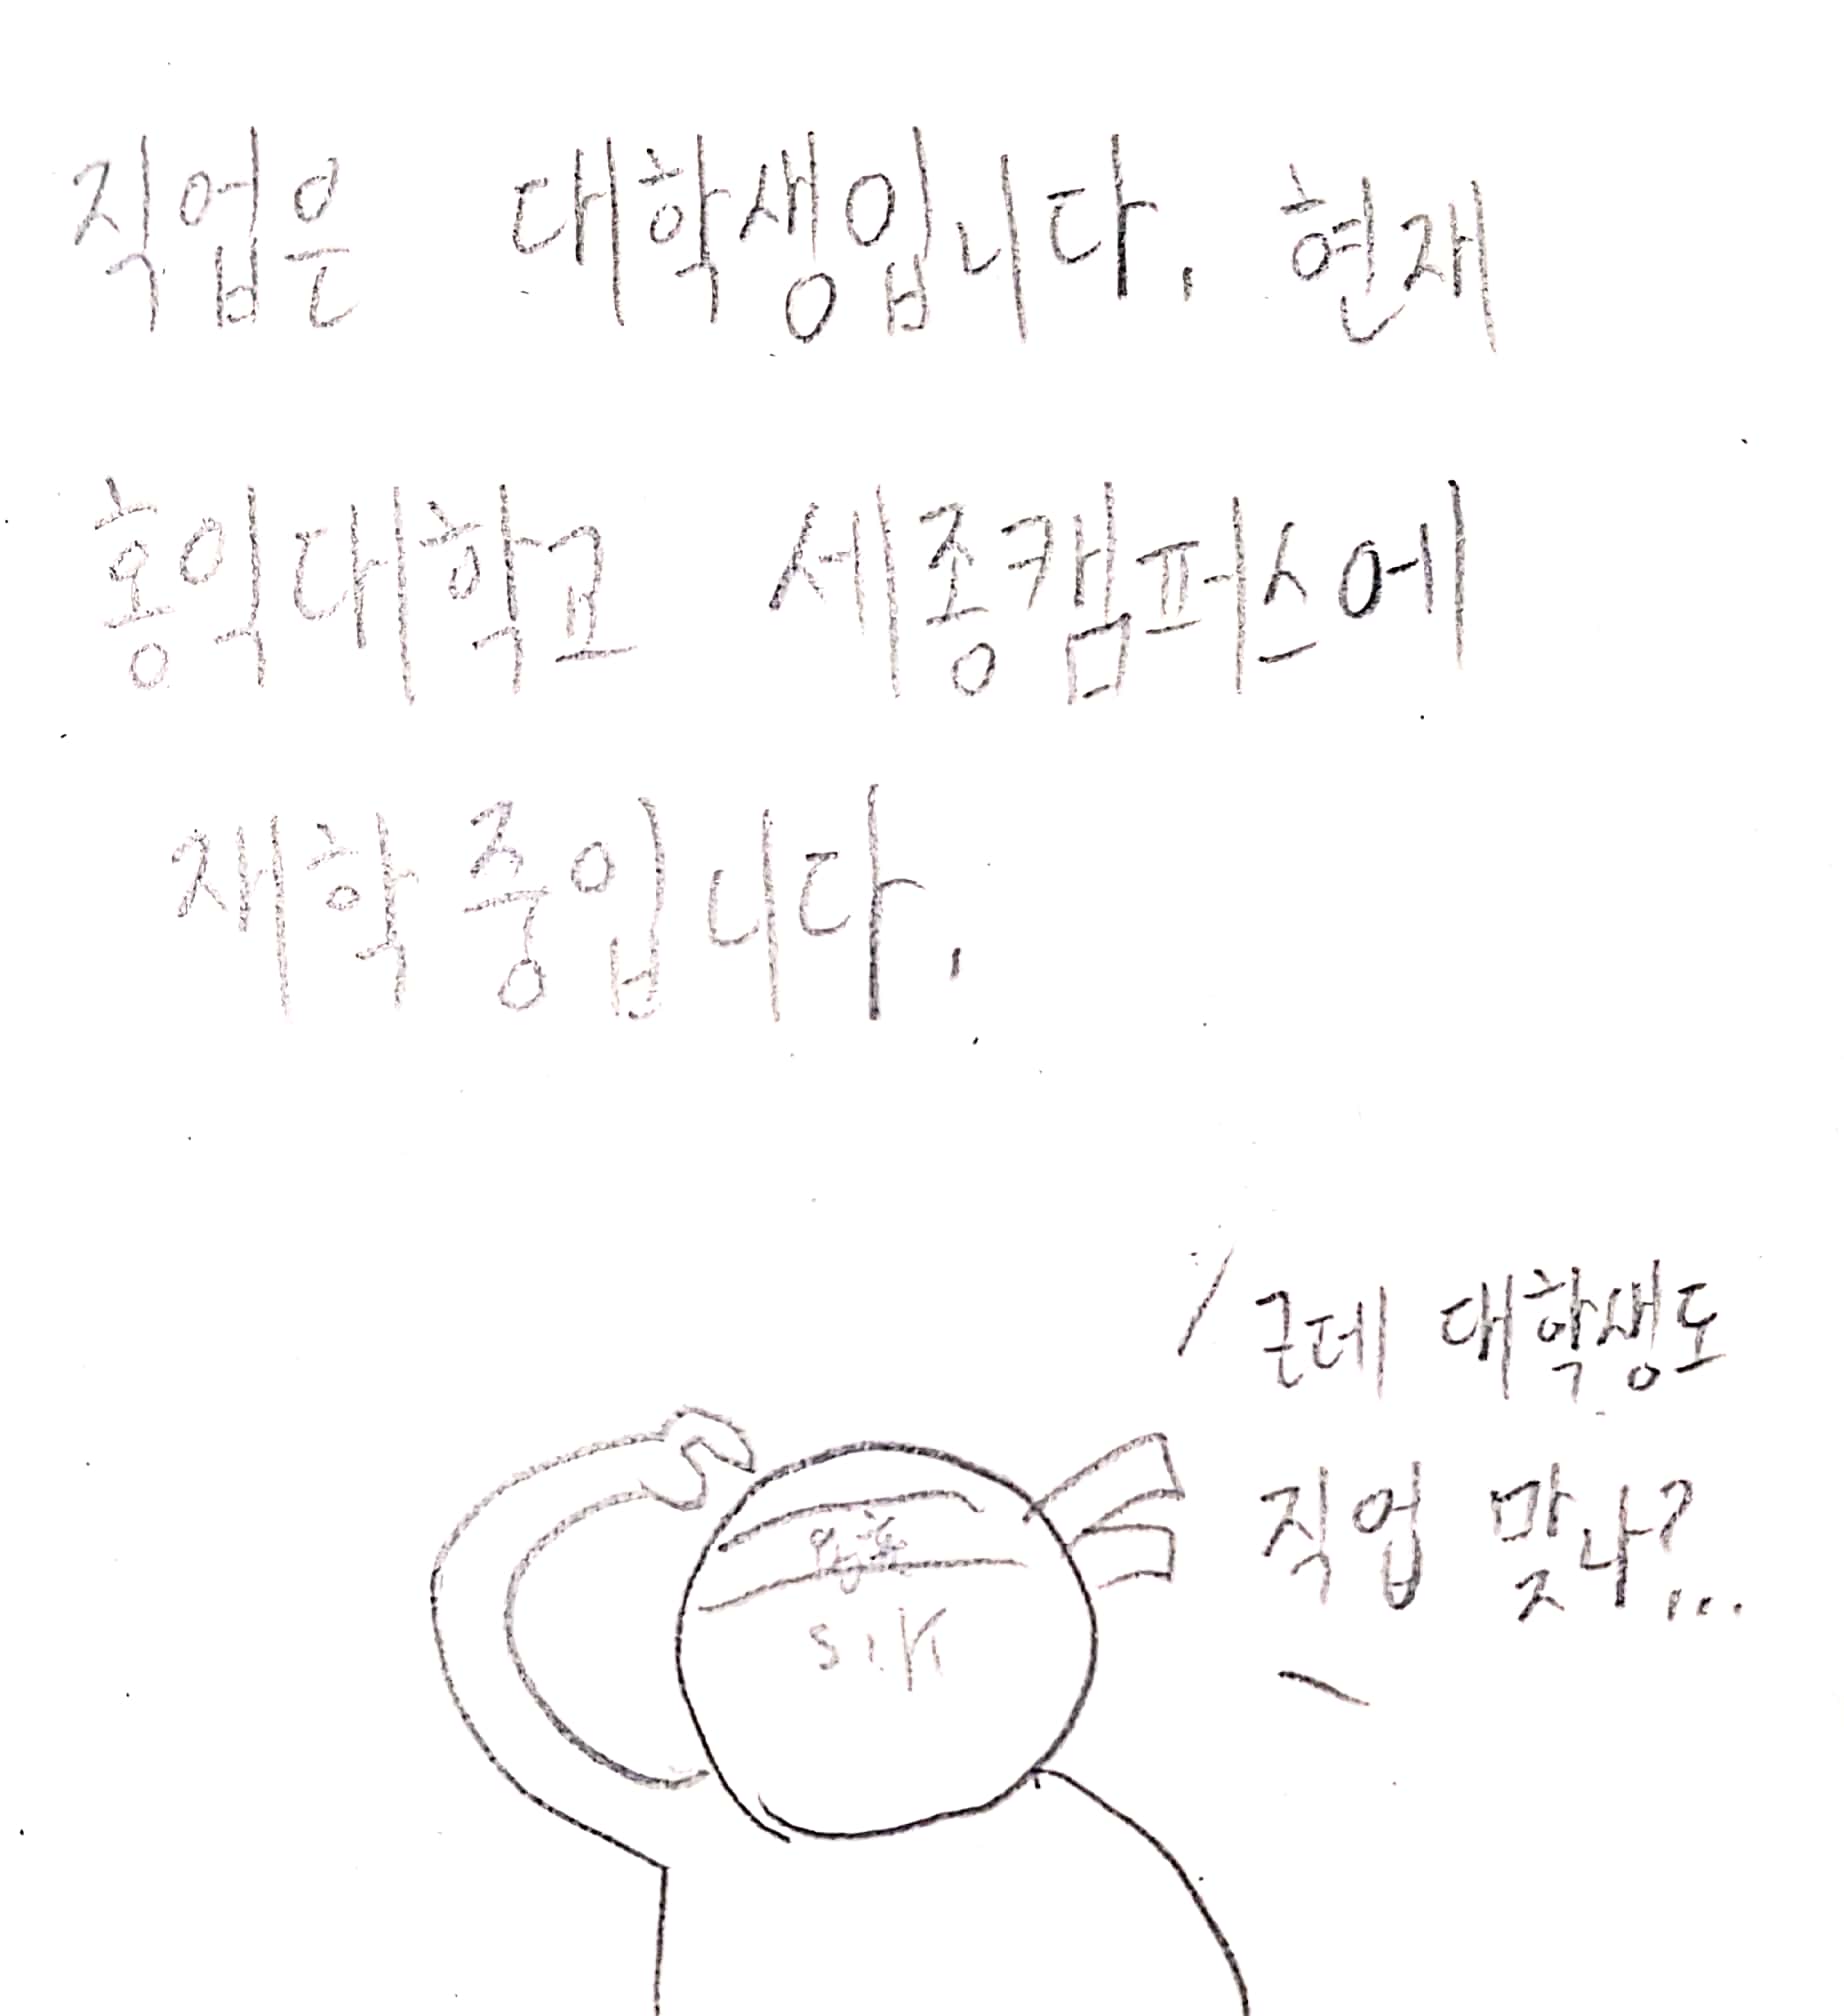 직업은 대학생입니다. 현재
홍익대학교 세종캠퍼스에
재학중입니다.
근데 대학생도
직업 맞나?...
S.K